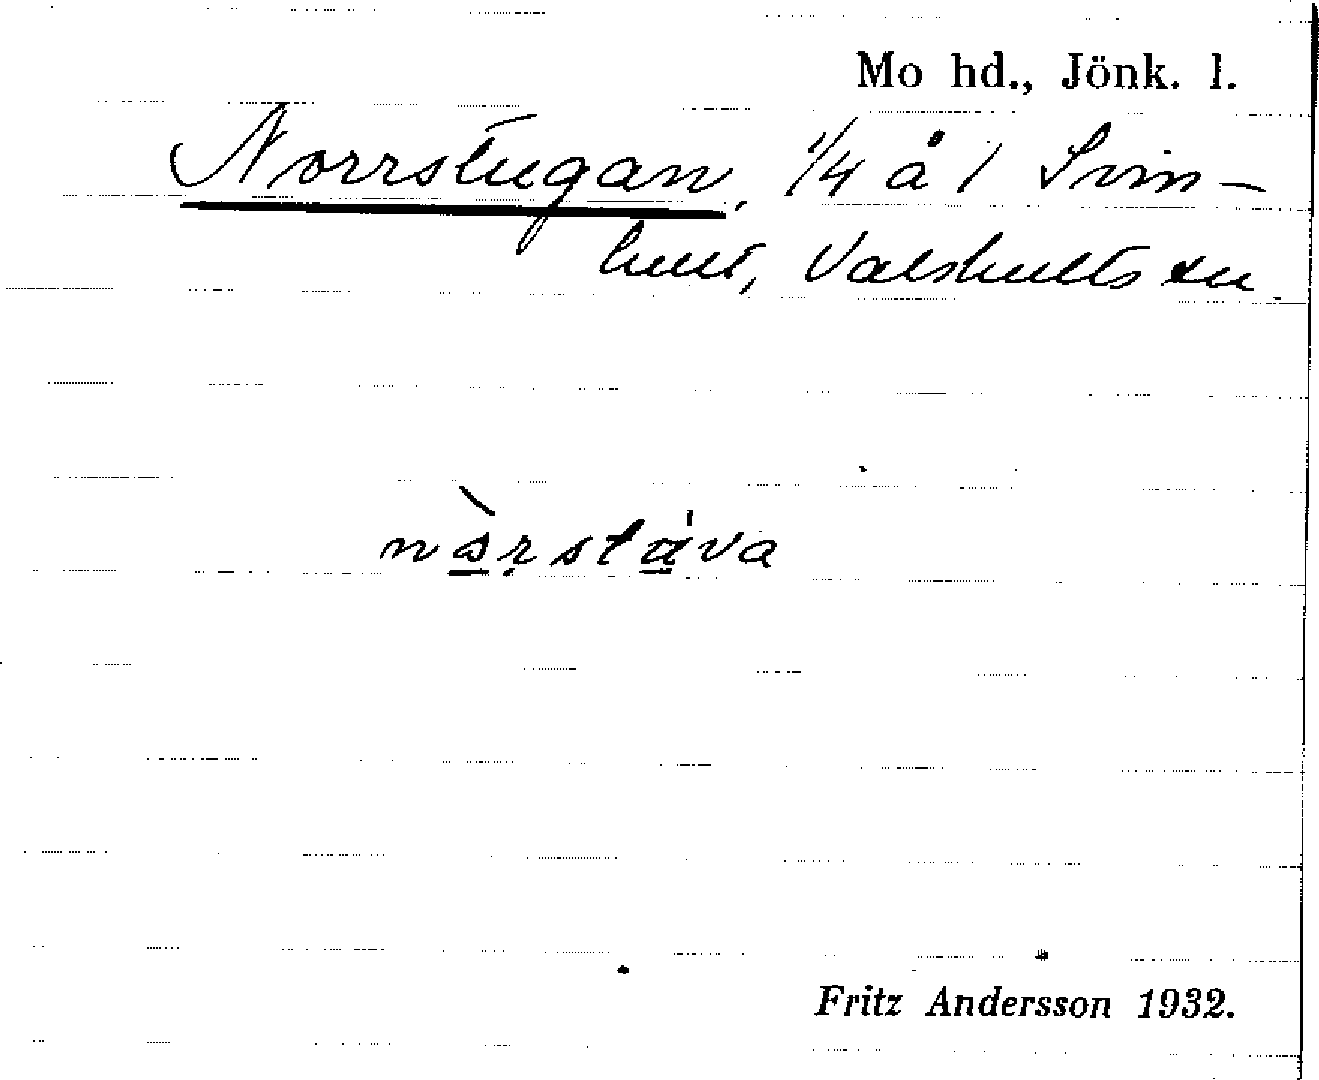 Mo hd., Jönk. l.
Norrstugan, 1/4 å 1 Svin-
hult, Valshults sn
Fritz Andersson 1932.